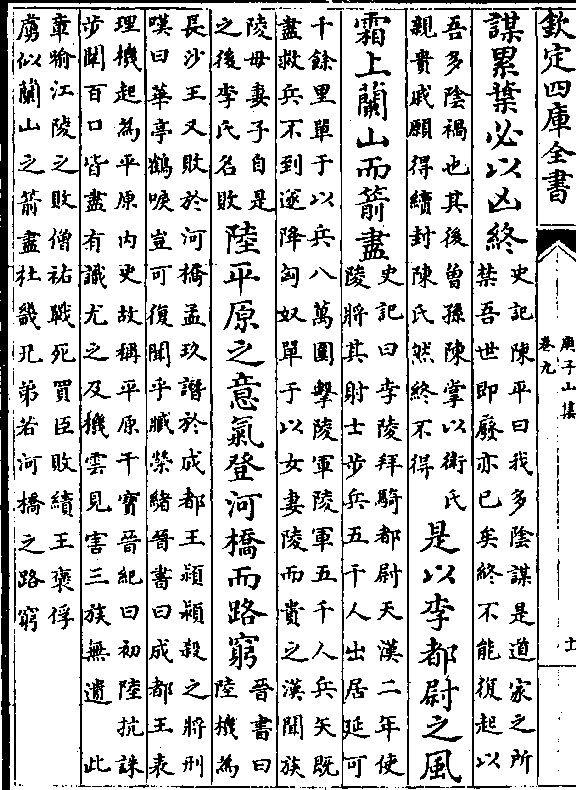 欽定四庫全書
庾子山集
卷九
十一
謀累葉必以凶終
史記陳平曰我多陰謀是道家之所
禁吾世即廢亦已矣終不能復起以
吾多陰禍也其後曾孫陳掌以衛氏
親貴戚願得續封陳氏然終不得
是以李都尉之風
霜上蘭山而箭盡
史記曰李陵拜騎都尉天漢二年使
陵將其射士步兵五千人出居延可
千餘里單于以兵八萬圍擊陵軍陵軍五千人兵矢既
盡救兵不到遂降匈奴單于以女妻陵而貴之漢聞族
陵母妻子自是
之後李氏名敗
陸平原之意氣登河橋而路窮
晉書曰
陸機為
長沙王乂敗於河橋孟玖譖於成都王穎穎殺之將刑
嘆曰華亭鶴唳豈可復聞乎臧榮緒晉書曰成都王表
理機起為平原內史故稱平原干寶晉紀曰初陸抗誅
步闡百口皆盡有識尤之及機雲見害三族無遺 此
章喻江陵之敗僧祐戰死買臣敗績王褒俘
虜似蘭山之箭盡杜畿孔弟若河橋之路窮